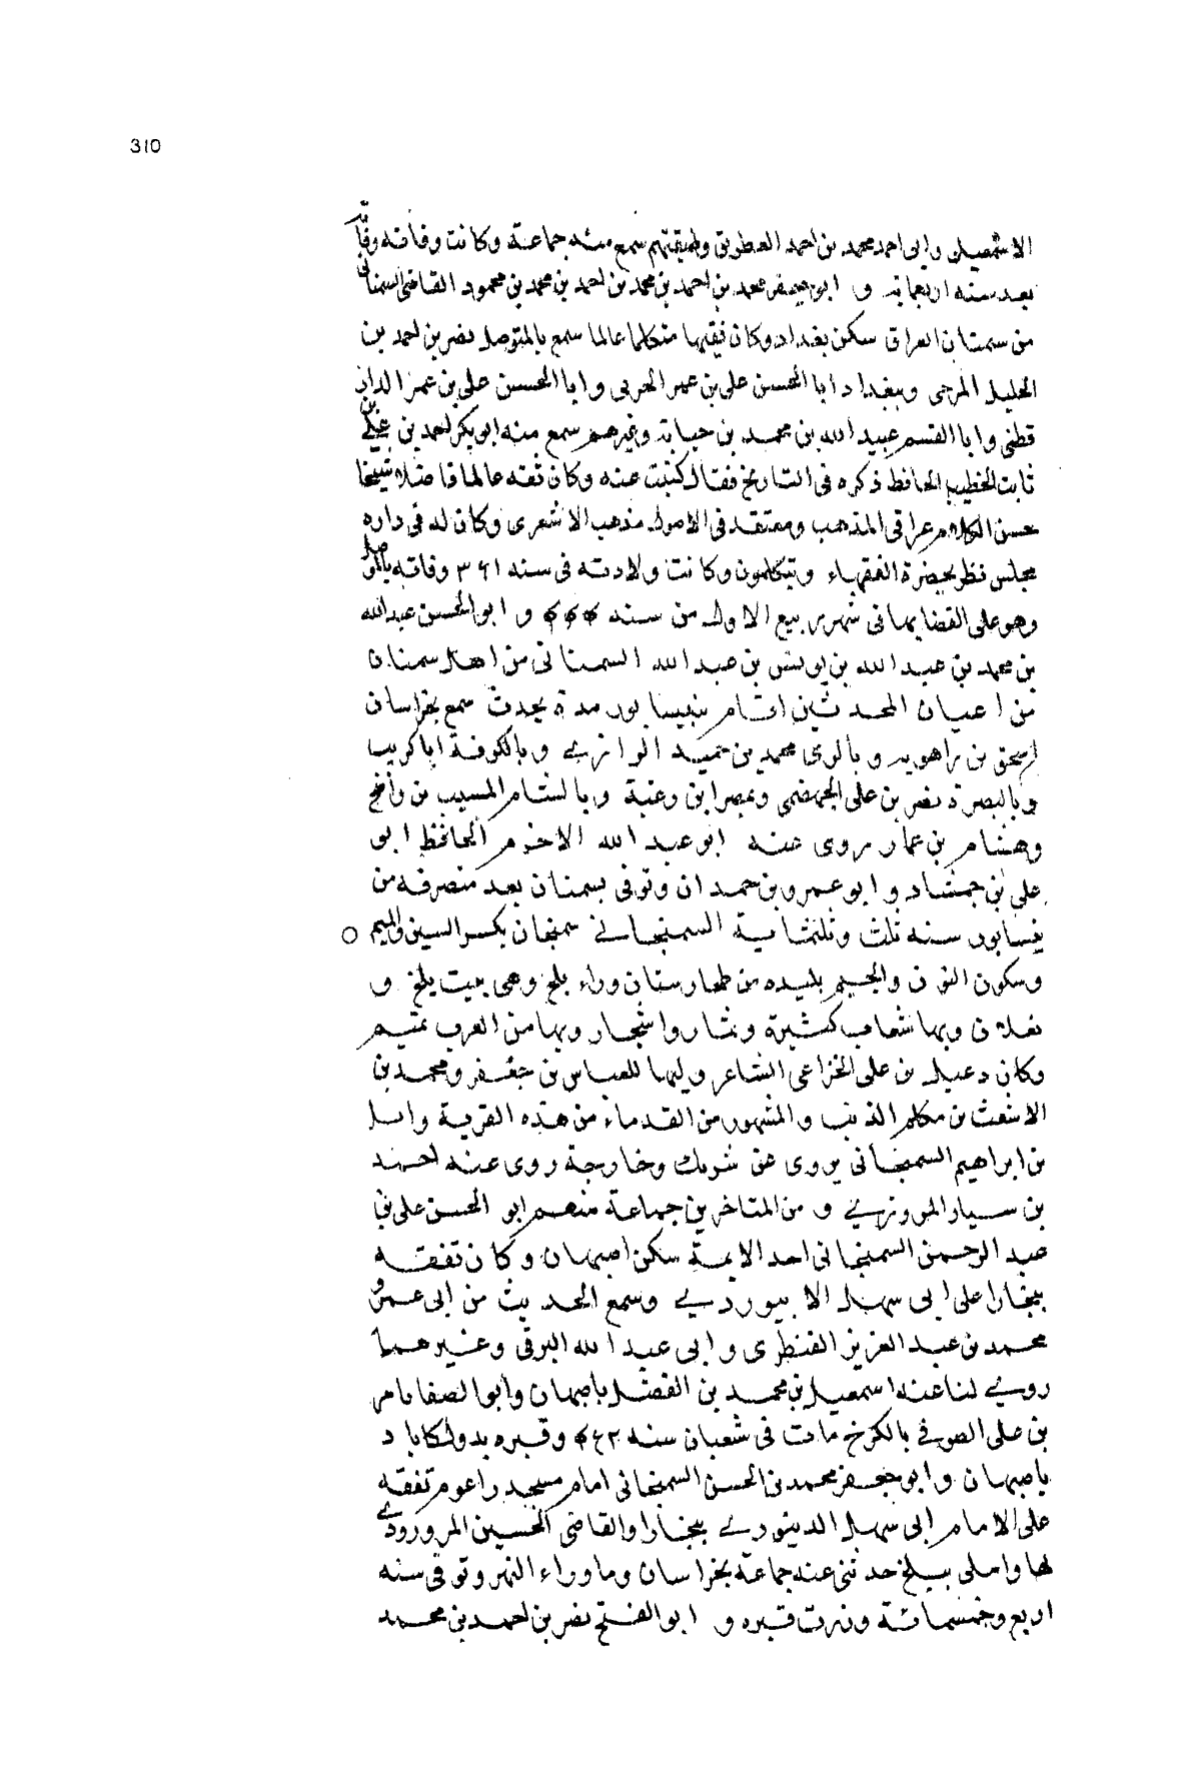 310
الاسمعيلى وابى احمد محمد بن احمد الغطريفى وطبقتهم سمع منه جماعة وكانت وفاته وفاته
بعد سنه اربعمايه و ابو جعفر محمد بن احمد بن محمد بن احمد بن محمد بن محمود القاضى السمنانى
من سمنان العراق سكن بغداد وكان فقيها متكلما عالما سمع بالموصل نصر بن احمد بن
الخليل المرجى وببغداد ابا الحسن على بن عمر الحربى وابا الحسن على بن عمر الدار
قطنى وابا القسم عبيد الله بن محمد بن حبابه وغيرهم سمع منه ابو بكر احمد بن على بن
ثابت الخطيب الحافظ ذكره فى التاريخ فقال كتبت عنه وكان ثقه عالما فاضلا شيخا
حسن الكلام عراقى المذهب ومعتقد فى الاصول مذهب الاشعرى وكان له فى داره
مجلس نظر بحضرة الفقهاء ويتكلمون وكانت ولادته فى سنه ٣٦١ وفاته بالموصل
وهو على القضا بها فى شهر ربيع الاول من سنه ٤٤٤ و ابو الحسن عبد الله
بن محمد بن عبد الله بن يونس بن عبد الله السمنانى من اهل سمنان
من اعيان المحدثين اقام بنيسابور مدة يحدث سمع بخراسان
اسحق بن راهويه وبالرى محمد بن حميد الرازى وبالكوفة ابا كريب
وبالبصرة نصر بن على الجهضمى وبمصر ابن رغبة وبالشام المسيب بن واضح
وهشام بن عمار روى عنه ابو عبد الله الاخرم الحافظ ابو
على بن جمشاد و ابو عمرو بن حمدان وتوفى بسمنان بعد منصرفه من
نيسابور سنه ثلث وثلثماية السمنجانى سمنجان بكسر السين والميم ○
وسكون النون والجيم بليده من طخارستان وراء بلخ وهى بيت بلخ و
بغلان وبها شعاب كثيرة وثمار واشجار وبها من العرب تميم
وكان دعبل بن على الخزاعى الشاعر وليها للعباس بن جعفر ومحمد بن
الاشعث بن مكلم الذيب والمشهور من القدماء من هذه القرية وابل
بن ابراهيم السمنجانى يروى عن شريك وخارجة روى عنه احمد
بن سيار المروزى و من المتاخرين جماعة منهم ابو الحسن على بن
عبد الرحمن السمنجانى احد الايمة سكن اصبهان وكان تفقه
ببخارا على ابى سهل الابيوردى وسمع الحديث من ابى عمرو
محمد بن عبد العزيز القنطرى و ابى عبد الله البرقى وغيرهما
روى لنا عنه اسمعيل بن محمد بن الفضل باصبهان وابو الصفا تامر
بن على الصوفى بالكرخ مات فى شعبان سنه وقبره بدولكاباد
باصبهان و ابو جعفر محمد بن الحسن السمنجانى امام مسجد راعوم تفقه
على الامام ابى سهل الدينورى ببخارا والقاضى الحسين المروروذى
لها واملى ببلخ حدثنى عنه جماعة بخراسان وما وراء النهر وتوفى سنه
اربع وخمسمائة وزرت قبره و ابو الفتح نصر بن احمد بن محمد